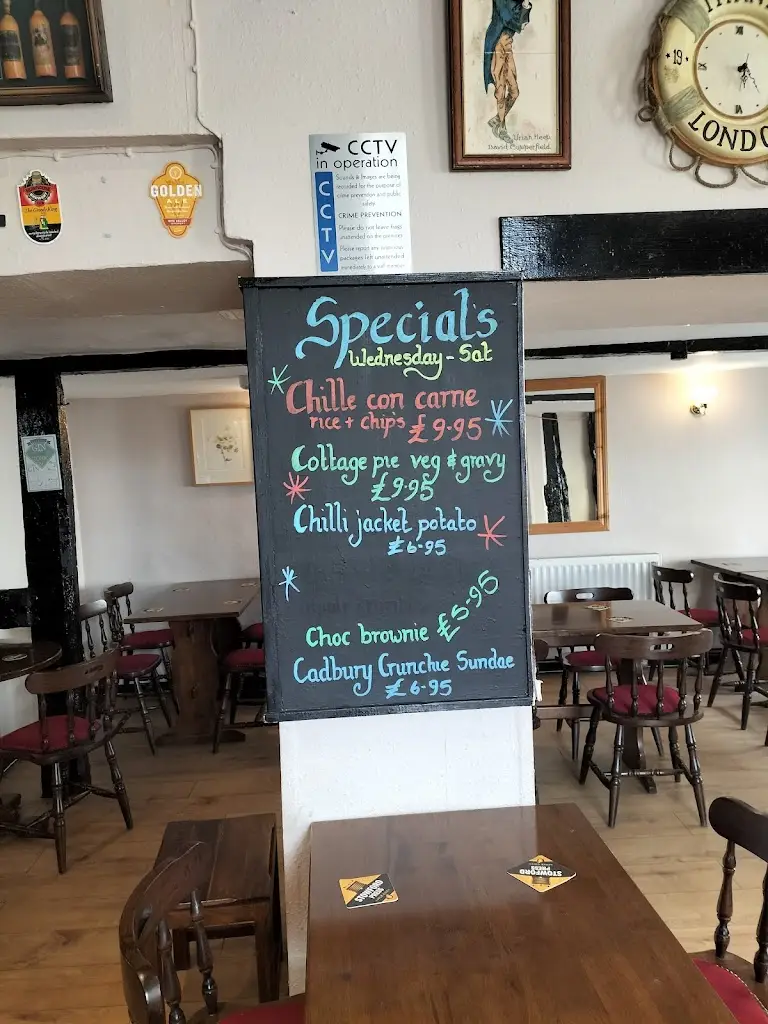 CCTV
in operation
Sounds & Images are being
recorded for the purpose of
crime prevention and public
safety.
CRIME PREVENTION
Please do not leave bags
unattended on the premises
Please report any suspicious
packages left unattended
immediately to a staff member
CCTV
GOLDEN
ALE
Uriah Heep
David Copperfield
19
LONDO
Special's
Wednesday - Sat
Chille con carne
rice + chip's £9.95
Cottage pie veg & gravy
£9.95
Chilli jacket potato
£6.95
Choc brownie £5.95
Cadbury Crunchie Sundae
£6.95
STOWFORD
PRESS
STOWFORD
PRESS